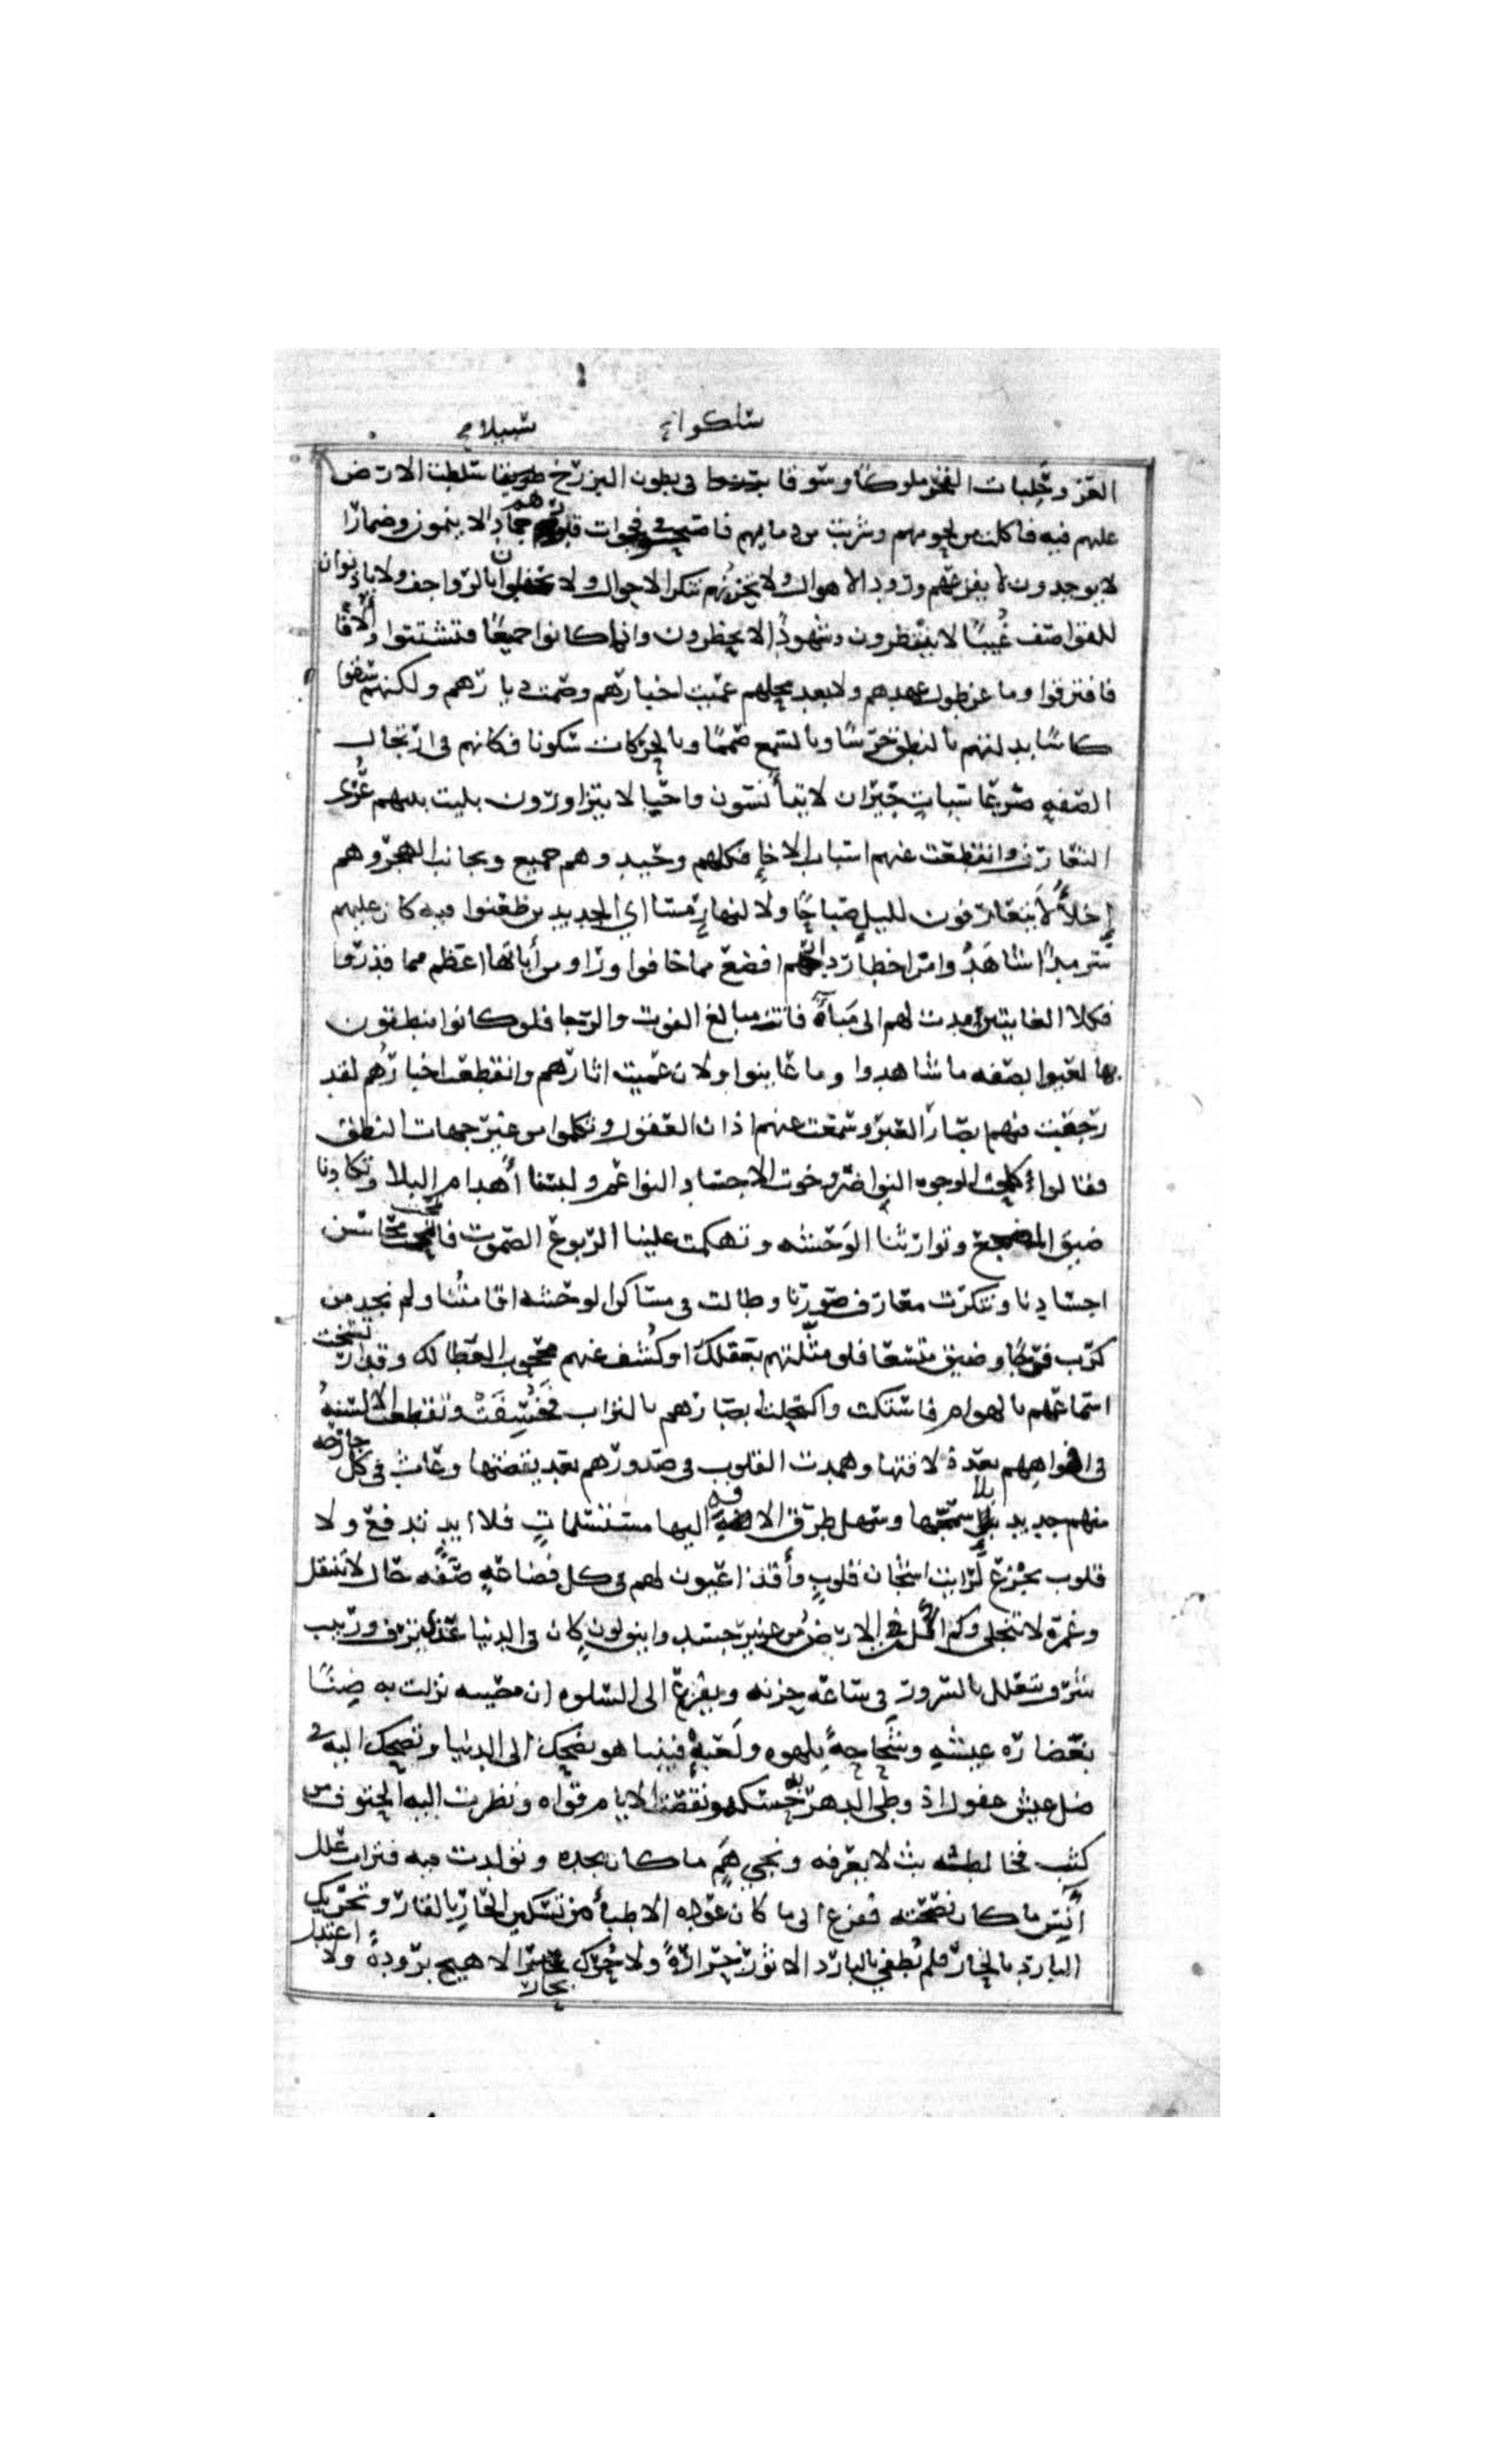 سلكوا في سبيلا
العز وحلبات الفخر ملوكا وسوقا في بطون البرزخ سلطت الارض
عليهم فيه فاكلت من لحومهم وشربت من دمايهم فاصبحوا في فجوات قبورهم جمادا لا ينمون وضمارا
لا يوجدون لا يفزعهم ورود الاهوال ولا يحزنهم تنكر الاحوال ولا يحفلون بالرواجف ولا ياذنون
للقواصف غيبا لا ينتظرون وشهودا لا يحظرون وانما كانوا جميعا فتشتتوا والافا
فافترقوا وما عن طول عهدهم ولا بعد محلهم عميت اخبارهم وصمت ديارهم ولكنهم سقوا
كاسا بدلتهم بالنطق خرسا وبالسمع صمما وبالحركات سكونا فكانهم في ارتجال
الصفه صرعا سبات جيران لا يتأنسون واحبا لا يتزاورون بليت بينهم عرى
التعارف وانقطعت عنهم اسباب الاخإ فكلهم وحيد وهم جميع وبجانب الهجر وهم
إخلاُّ لا يتعارفون لليل صباحا ولا لنهار مسا اي الجديدين ظعنوا فيه كان عليهم
سرمدا شاهدوا من اخطار دارهم افضع مما خافوا وراو من أياتها اعظم مما قدروا
فكلا الغايتين مدت لهم الى مباةٍ فاتت مبالغ الفوت والرجا فلو كانوا ينطقون
بها لعيوا بصفه ما شاهدوا وما عاينوا ولان عميت اثارهم وانقطعت اخبارهم لقد
رجعت فيهم بصار العبر وسمعت عنهم اذان العقول وتكلموا من غير جهات النطق
فقالوا كلحت الوجوه النواضر وخوت الاجساد النواعم ولبسنا أهدام البلا وتكادنا
ضيق المضجع وتوارثنا الوحشه وتهكمت علينا الربوع الصموت فانمحت محاسن
اجسادنا وتنكرت معارف صورنا وطالت في مساكن الوحشه اقامتنا ولم نجد من
كرب فرجا ومن ضيق متسعا فلو مثلتهم بعقلك او كشف عنهم محجوب الغطا لك وقد ارتسخت
اسماعهم بالهوام فاستكت واكتحلت ابصارهم بالتراب فخسفت وتقطعت الالسنه
في افواههم بعد ذلاقتها وهمدت القلوب في صدورهم بعد يقضتها وعاث في كل جارحه
منهم جديد بلا سمجها وسهل طرق الافه اليها مستسلمات فلا ايد تدفع ولا
قلوب تجزع لرايت اشجان قلوب وأقذا عيون لهم في كل فضاعه صفه حال لا تنتقل
وغمرة لا تنجلي وكم اكلت الارض من عزيز جسد وانيق لون كان في الدنيا غذي ترف وربيب
شرف يتعلل بالسرور في ساعه حزنه ويفزع الى السلوه ان مصيبه نزلت به ضنا
بغضاره عيشه وشحاحةً بلهوه ولعبه فبينا هو يضحك الى الدنيا وتضحك اليه في
ضل عيش غفول اذ وطي الدهر به حسكه ونقضت الايام قواه ونظرت اليه الحتوف من
كثب فخالطه بث لا يعرفه ونجي هم ما كان يجده وتولدت فيه فترات علل
أنس ما كان بصحته ففزع الى ما كان عوده الاطبأ من تسكين الحار بالقار وتحريك
البارد بالحار فلم تطفي بالبارد الا ثور حرارة ولا حرك بحار الا هيج برودة ولا اعتدل